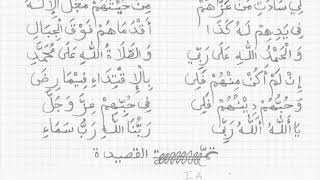 لِي سَادَتٌ مِنْ عِزِّهِمْ مِنْ حَيْثُهُمْ مَحَلُّ الإِلَهْ
فِي يَدِهِمْ لَهُ كَذَا أَقْدَامُهُمْ فَوْقَ الْجِبَالْ
وَالْحَمْدُ اللهِ عَلَى رَبِّي وَالصَّلَاةُ اللهِ عَلَى مُحَمَّدٍ
إِنْ لَمْ أَكُنْ مِنْهُمْ فَلِي بِالإِقْتِدَاءِ فِيمَا رَضِ
وَحُبُّهُمْ دِيْنُهُمْ فَلِي فِي حُبِّهِمْ عِزٌّ وَجَلَّ
يَا اَللهُ اَللهُ رَبِّي رَبُّنَا اللهُ رَبُّ سَمَاءِ
تمّت القصيدة
I A